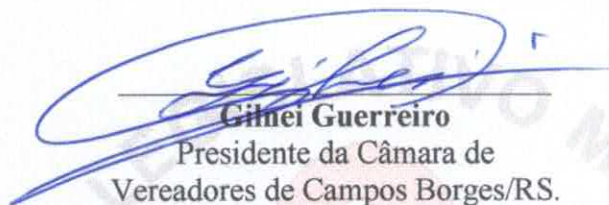 Gilnei Guerreiro
Presidente da Câmara de
Vereadores de Campos Borges/RS.